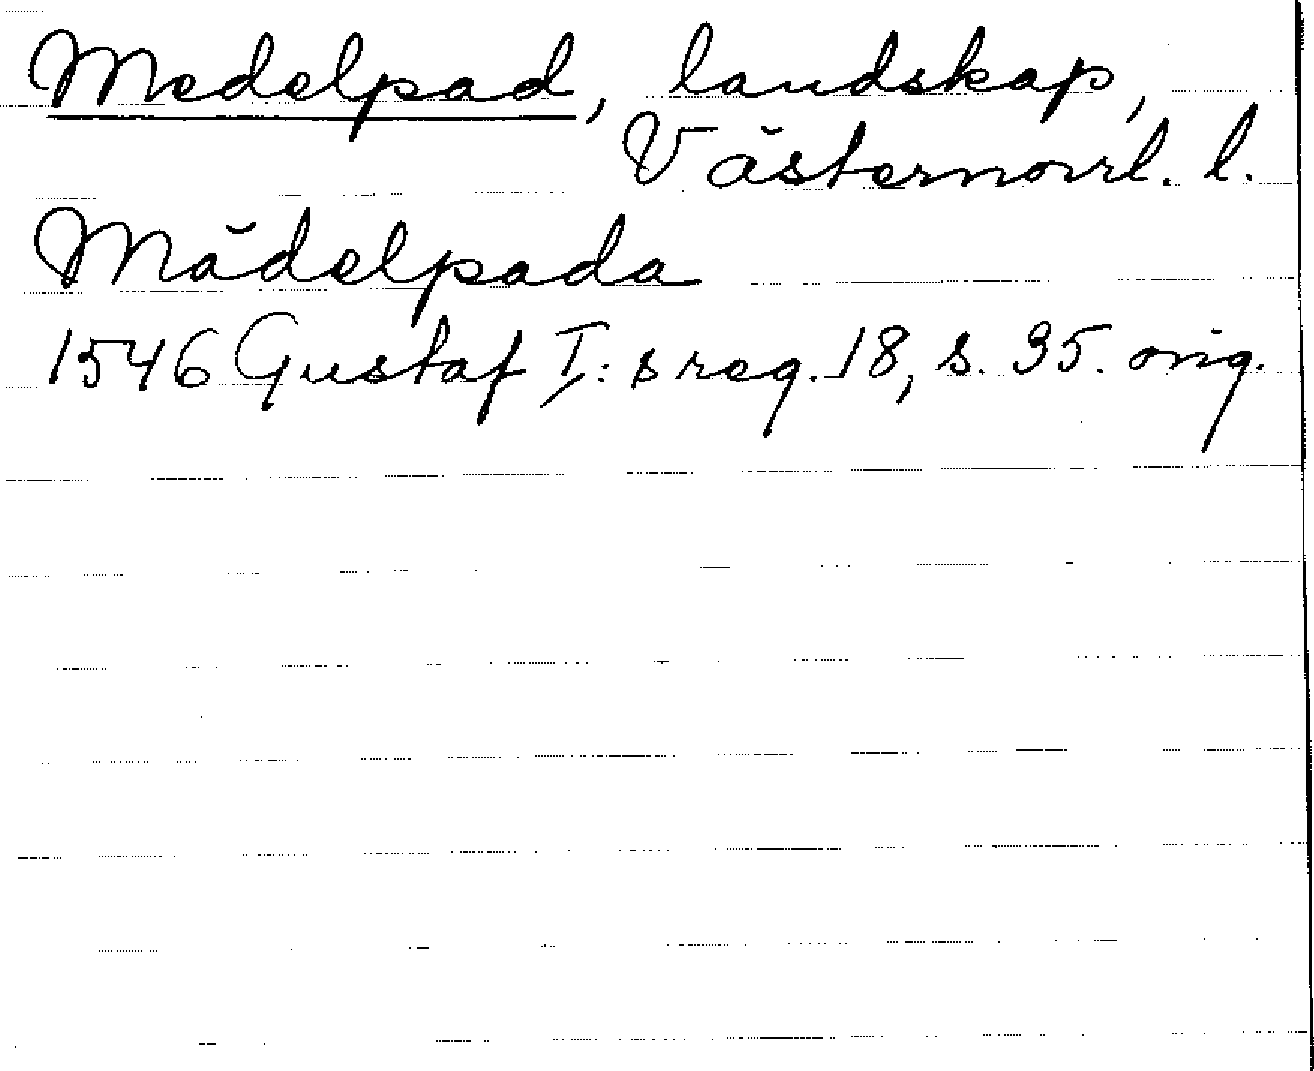 Medelpad, landskap,
Västernorrl. l.
Mädelpada
1546 Gustaf I:s reg. 18, s. 35. orig.